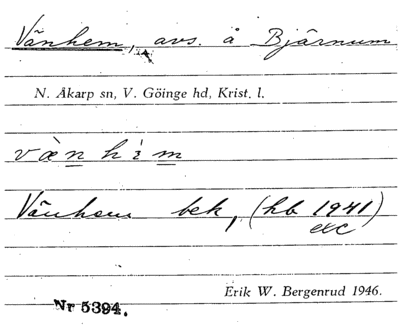 Vänhem, avs. å Bjärnum
N. Åkarp sn, V. Göinge hd, Krist. l.
væ̀n hìm
Vänhem bek, (hb 1941)
exc
Erik W. Bergenrud 1946.
Nr 5394.